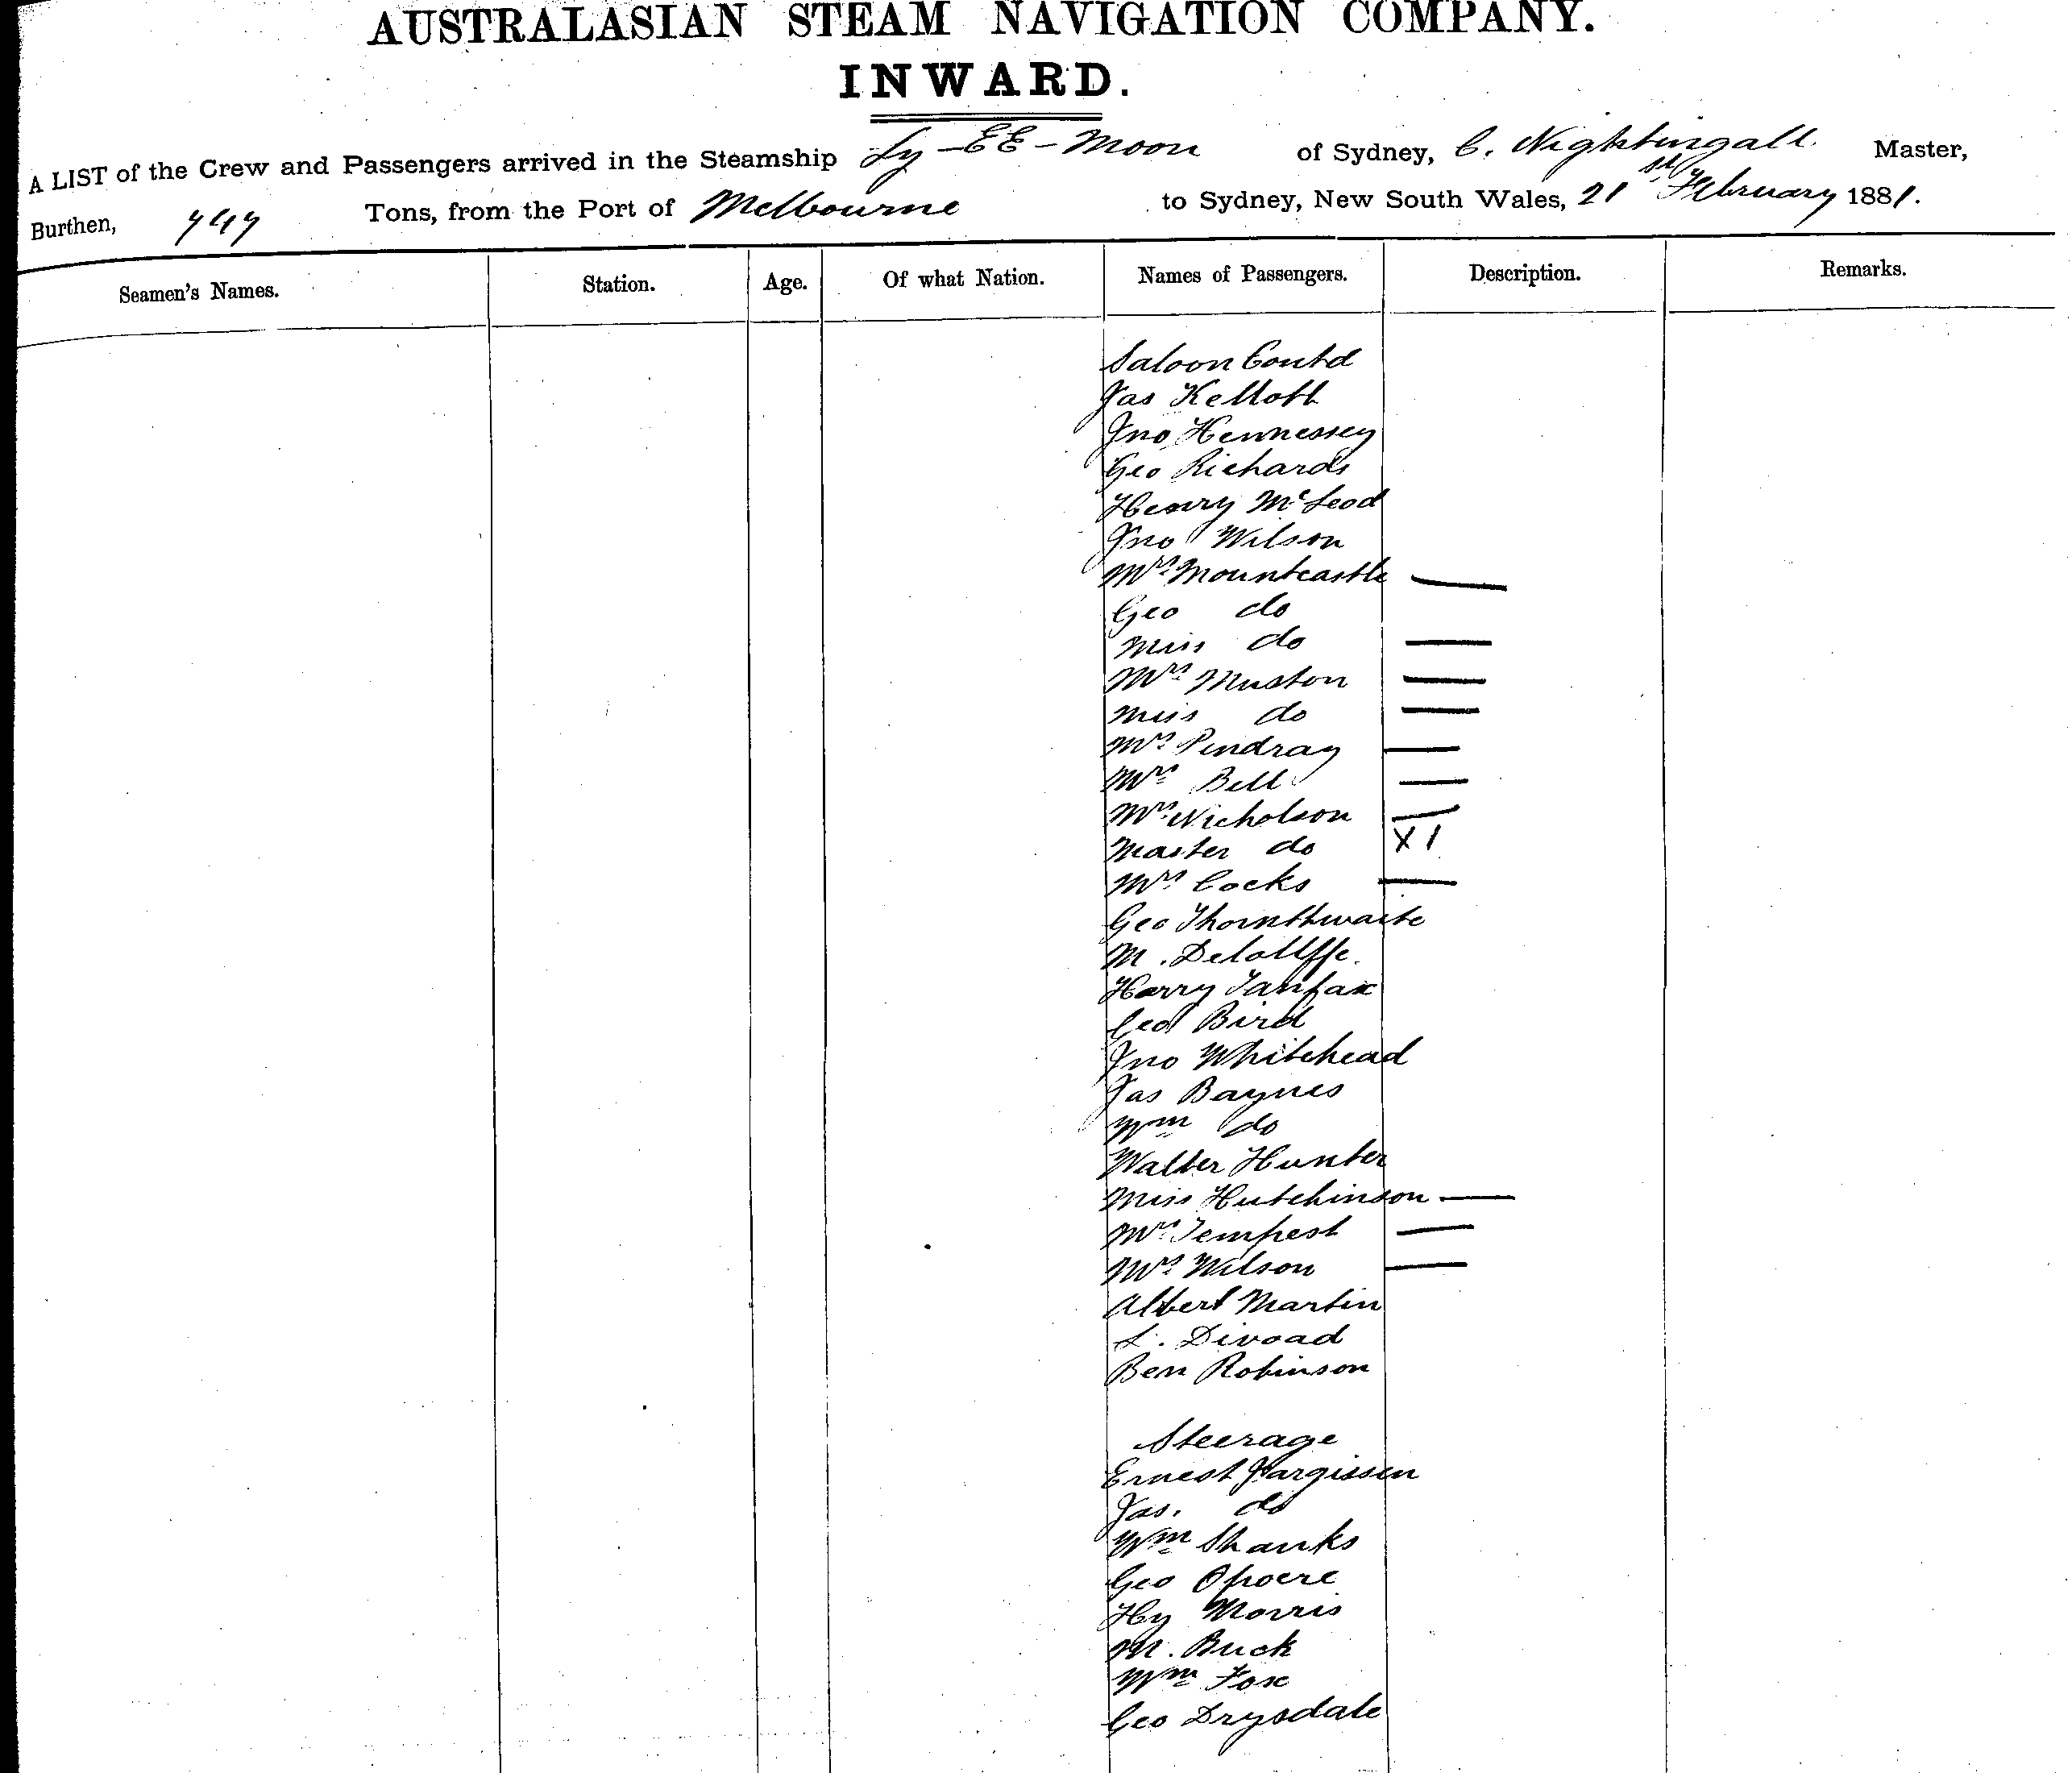 AUSTRALASIAN STEAM NAVIGATION COMPANY.
INWARD.
A LIST of the Crew and Passengers arrived in the Steamship Ly-EE-Moon of Sydney, C. Nightingall Master,
Burthen, 749 Tons, from the Port of Melbourne to Sydney, New South Wales, 21st February 1881.
Seamen's Names. Station. Age. Of what Nation. Names of Passengers. Description. Remarks.
Saloon Contd
Jas Kellott
Jno Hennessey
Geo Richards
Henry McLeod
Jno Wilson
Mrs Mountcastle —
Geo do
Miss do —
Mrs Muston —
Miss do —
Mrs Pendray —
Mrs Bell —
Mrs Nicholson —
Master do X 1
Mrs Cocks —
Geo Thornthwaite
M.
Harry Fanfax
Geo Bird
Jno Whitehead
Jas Baynes
Wm do
Walter Hunter
Miss Hutchinson —
Mrs Tempest —
Mrs Wilson —
Albert Martin
L. Divoad
Ben Robinson
Steerage
Ernest Jargissen
Jas. do
Wm Shanks
Geo
Hy Morris
M. Buck
Wm Fox
Geo Drysdale